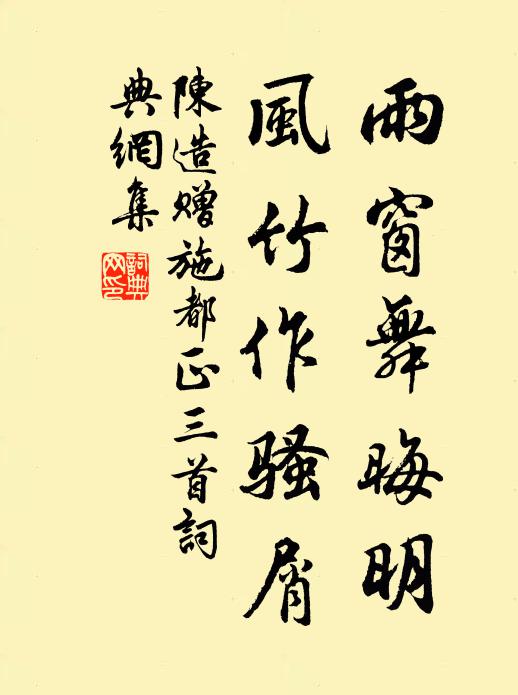 雨窗舞晦明
風竹作騷屑
陳造赠施都正三首詞
典網集
詞典網印